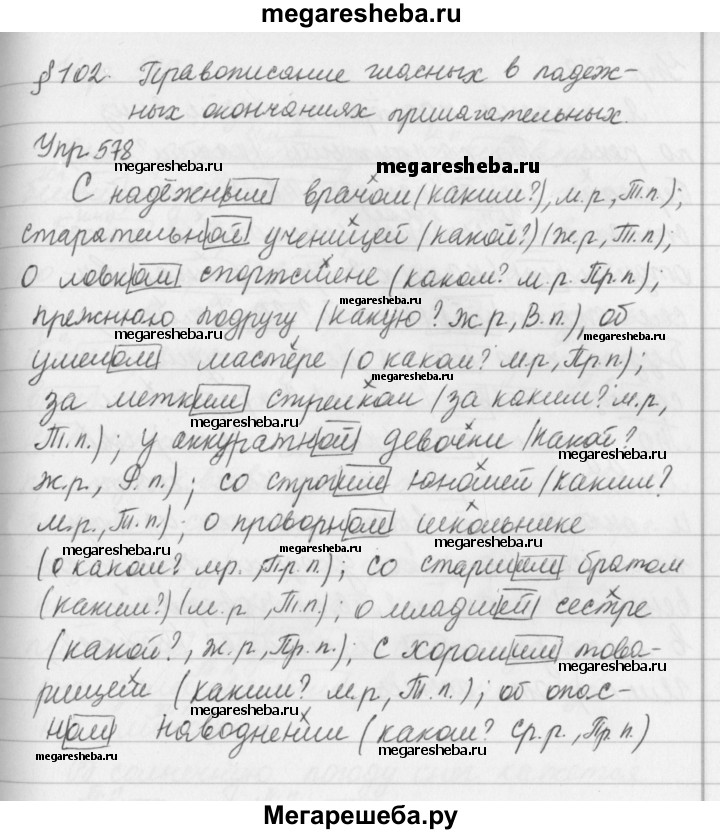 megaresheba.ru
§102. Правописание гласных в падеж-
ных окончаниях прилагательных.
Упр 578
megaresheba.ru
megaresheba.ru
С надёжным врачом (каким?), м.р., Т.п.);
старательной ученицей (какой?) (ж.р., Т.п.),
о ловком спортсмене (каком? м.р. Пр.п.),
megaresheba.ru
megaresheba.ru
прежнюю подругу (какую? ж.р., В.п.), об
умелом мастере (о каком? м.р., Пр.п.);
megaresheba.ru
за метким стрелком (за каким? м.р.,
megaresheba.ru
Т.п.); у аккуратной девочки (какой?
megaresheba.ru
ж.р., Р.п.); со строгим юношей (каким?
м.р., Т.п.); о проворном школьнике
megaresheba.ru
megaresheba.ru
megaresheba.ru
(о каком? м.р., Пр.п.); со старшим братом
(каким?) (м.р., Т.п.); о младшей сестре
megaresheba.ru
(какой?, ж.р., Пр.п.); с хорошим това-
megaresheba.ru
рищем (каким? м.р., Т.п.); об опас-
megaresheba.ru
ном наводнении (каком? ср.р., Пр.п.)
megaresheba.ru
megaresheba.ru
Мегарешеба.ру